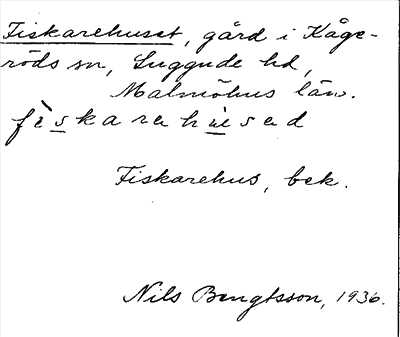 Fiskarehuset, gård i Kåge-
röds sn, Luggude hd,
Malmöhus län.
fìskarehùsed
Fiskarehus, bek.
Nils Bengtsson, 1936.